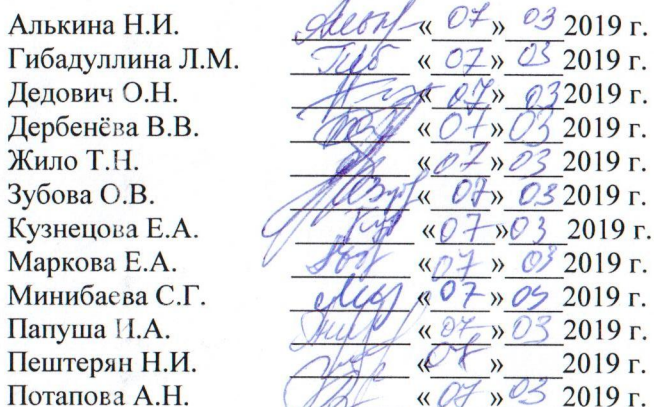 Алькина Н.И. «07» 03 2019 г.
Гибадуллина Л.М. «07» 03 2019 г.
Дедович О.Н. «07» 03 2019 г.
Дербенёва В.В. «07» 03 2019 г.
Жило Т.Н. «07» 03 2019 г.
Зубова О.В. «07» 03 2019 г.
Кузнецова Е.А. «07» 03 2019 г.
Маркова Е.А. «07» 03 2019 г.
Минибаева С.Г. «07» 03 2019 г.
Папуша И.А. «07» 03 2019 г.
Пештерян Н.И. «07» 2019 г.
Потапова А.Н. «07» 03 2019 г.